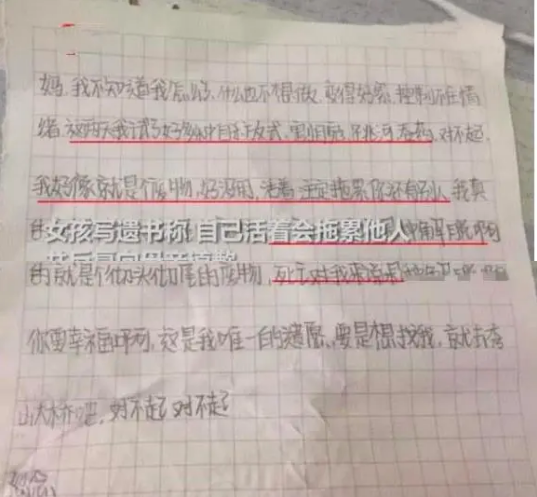 妈,我不知道我怎么了,什么也不想做,变得好累,控制不住情
绪 这两天我试了好多种自杀方式,割腕,跳河 吞药,对不起
我好像就是个废物,好没用,活着 注定拖累你还有别人 我真
的
女孩写遗书称 自己活着会拖累他人
解脱
的就是个彻头彻尾的废物,死亡对我来说是
你要幸福啊,这是我唯一的遗愿,要是想找我,就去
山大桥吧,对不起 对不起